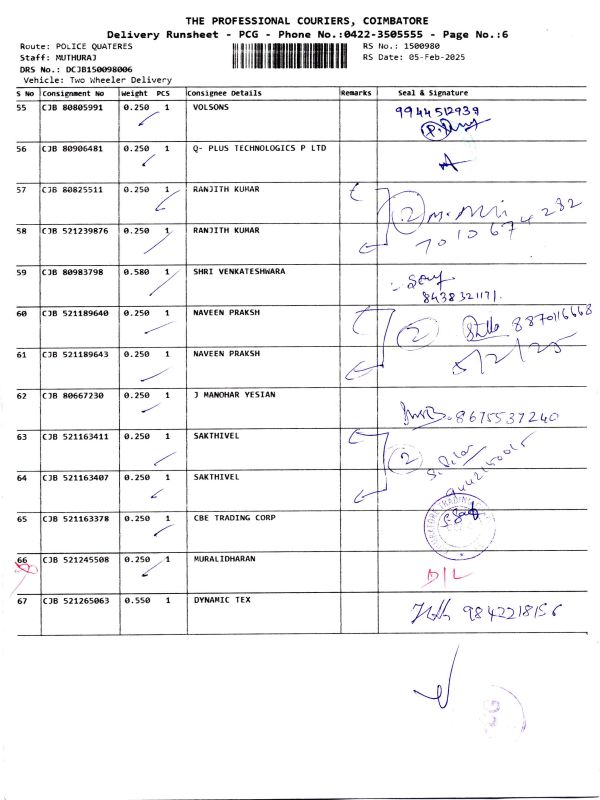 THE PROFESSIONAL COURIERS, COIMBATORE
Delivery Runsheet - PCG - Phone No.:0422-3505555 - Page No.:6
Route: POLICE QUATERES RS No.: 1500980
Staff: MUTHURAJ RS Date: 05-Feb-2025
DRS No.: DCJB150098006
Vehicle: Two Wheeler Delivery
S No Consignment No Weight PCS Consignee Details Remarks Seal & Signature
55 CJB 80805991 0.250 1 VOLSONS 9944512939
56 CJB 80906481 0.250 1 Q- PLUS TECHNOLOGICS P LTD
57 CJB 80825511 0.250 1 RANJITH KUMAR 2
58 CJB 521239876 0.250 1 RANJITH KUMAR 7010674282
59 CJB 80983798 0.580 1 SHRI VENKATESHWARA
8438321171.
60 CJB 521189640 0.250 1 NAVEEN PRAKSH 2 8870116668
61 CJB 521189643 0.250 1 NAVEEN PRAKSH 5/2/25
62 CJB 80667230 0.250 1 J MANOHAR YESIAN 8675537240
63 CJB 521163411 0.250 1 SAKTHIVEL 2
64 CJB 521163407 0.250 1 SAKTHIVEL
65 CJB 521163378 0.250 1 CBE TRADING CORP
66 CJB 521245508 0.250 1 MURALIDHARAN D/L
67 CJB 521265063 0.550 1 DYNAMIC TEX 9842218156